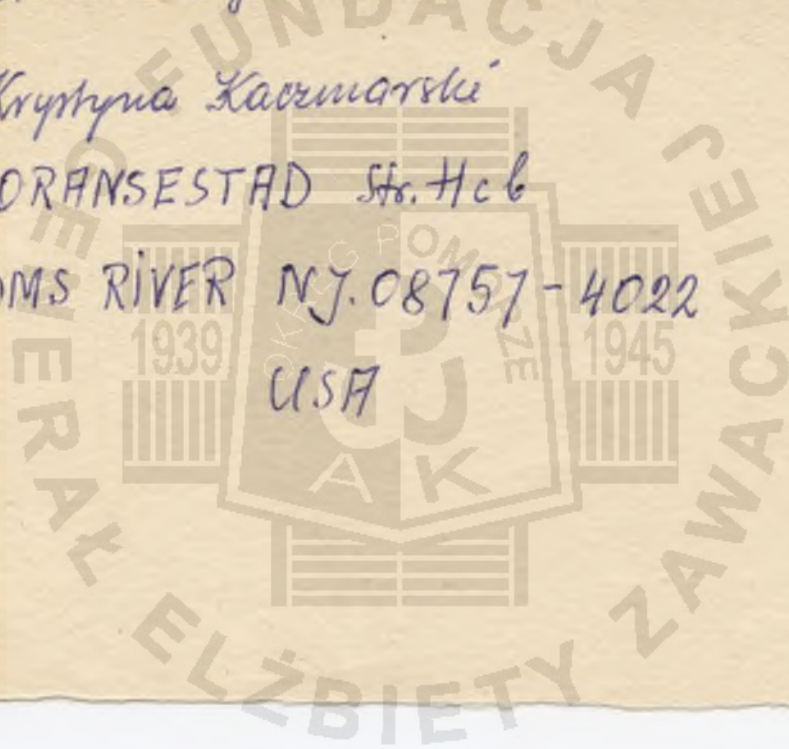 Krystyna Kaczmarski
ORANSESTAD Str. Hcb
OMS RIVER NJ. 08757-4022
USA
FUNDACJA GENERAŁ ELŻBIETY ZAWACKIEJ
OKRĘG POMORZE
1939
1945
AK